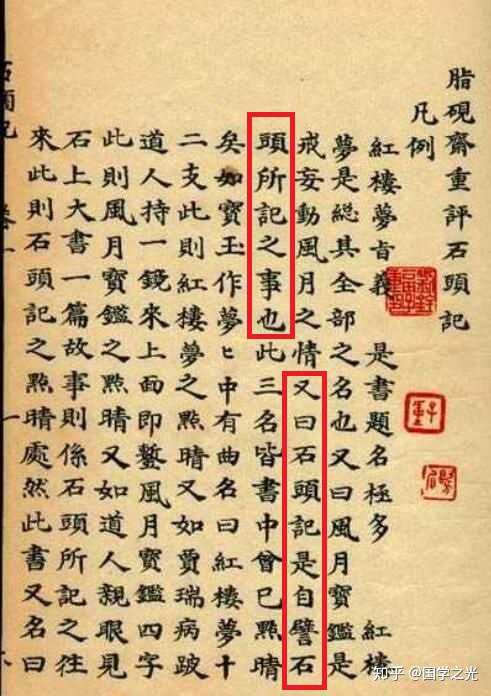 脂硯齋重評石頭記
凡例
紅樓夢旨義 是書題名極多 紅樓
夢是総其全部之名也又曰風月寶鑑是
戒妄動風月之情又曰石頭記是自譬石
頭所記之事也此三名皆書中曾已點晴
矣如寶玉作夢ヒ中有曲名曰紅樓夢十
二支此則紅樓夢之點晴又如賈瑞病跛
道人持一鏡來上面即鏨風月寶鑑四字
此則風月寶鑑之點晴又如道人親眼見
石上大書一篇故事則係石頭所記之往
來此則石頭記之點晴處然此書又名曰
子重
知乎 @国学之光